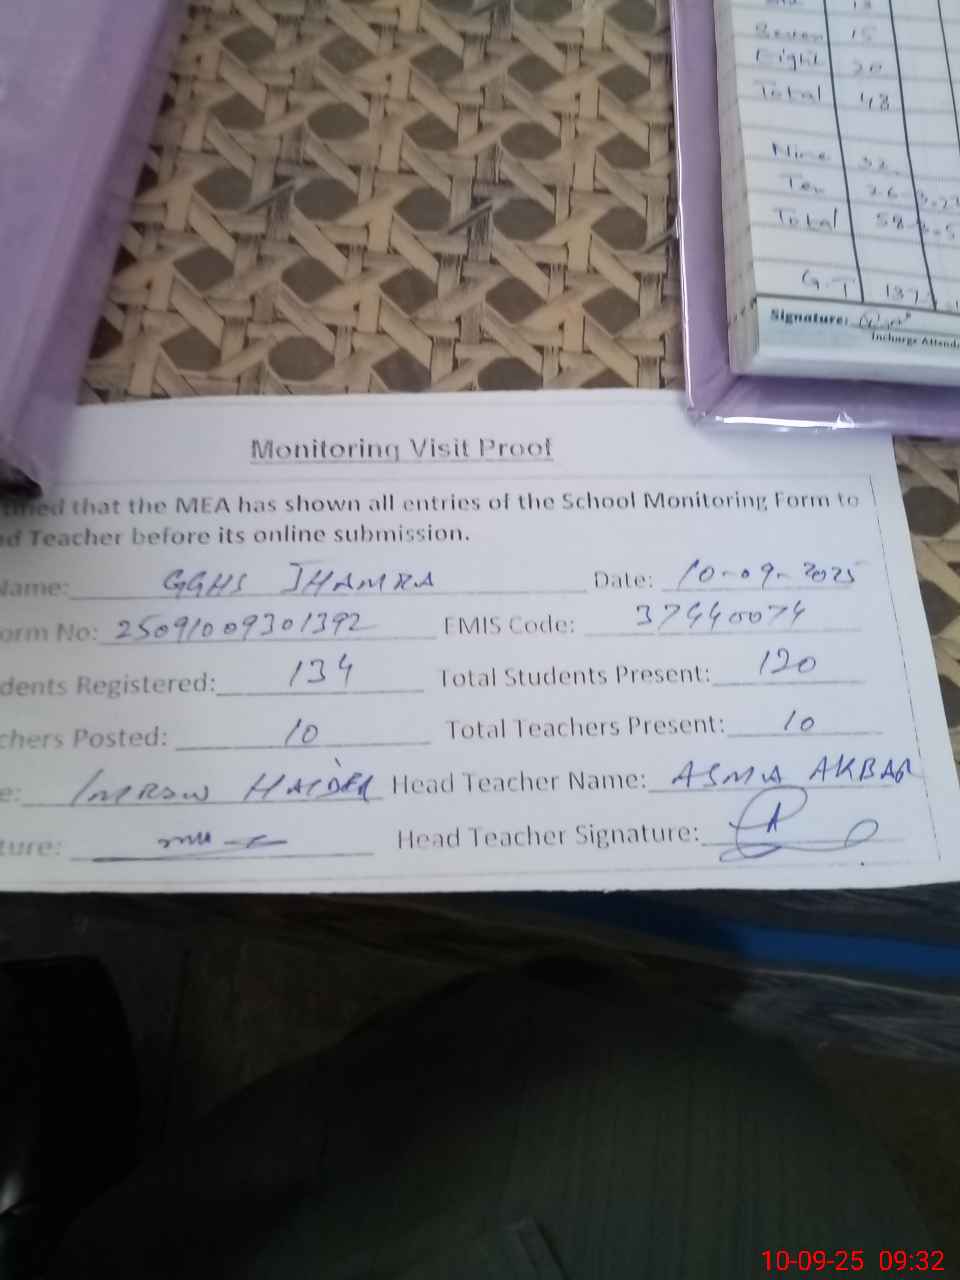 Seven 15
Eight 20
Total 48
Nine 32
Ten 26
Total 58
G.T
Signature:
Incharge Attend
Monitoring Visit Proof
that the MEA has shown all entries of the School Monitoring Form to
d Teacher before its online submission.
Name: GGHS JHAMRA Date: 10-09-2025
orm No: 25091009301392 EMIS Code: 37440074
dents Registered: 134 Total Students Present: 120
chers Posted: 10 Total Teachers Present: 10
e: IMRAN HAIDER Head Teacher Name: ASMA AKBAR
ture: Head Teacher Signature:
10-09-25 09:32